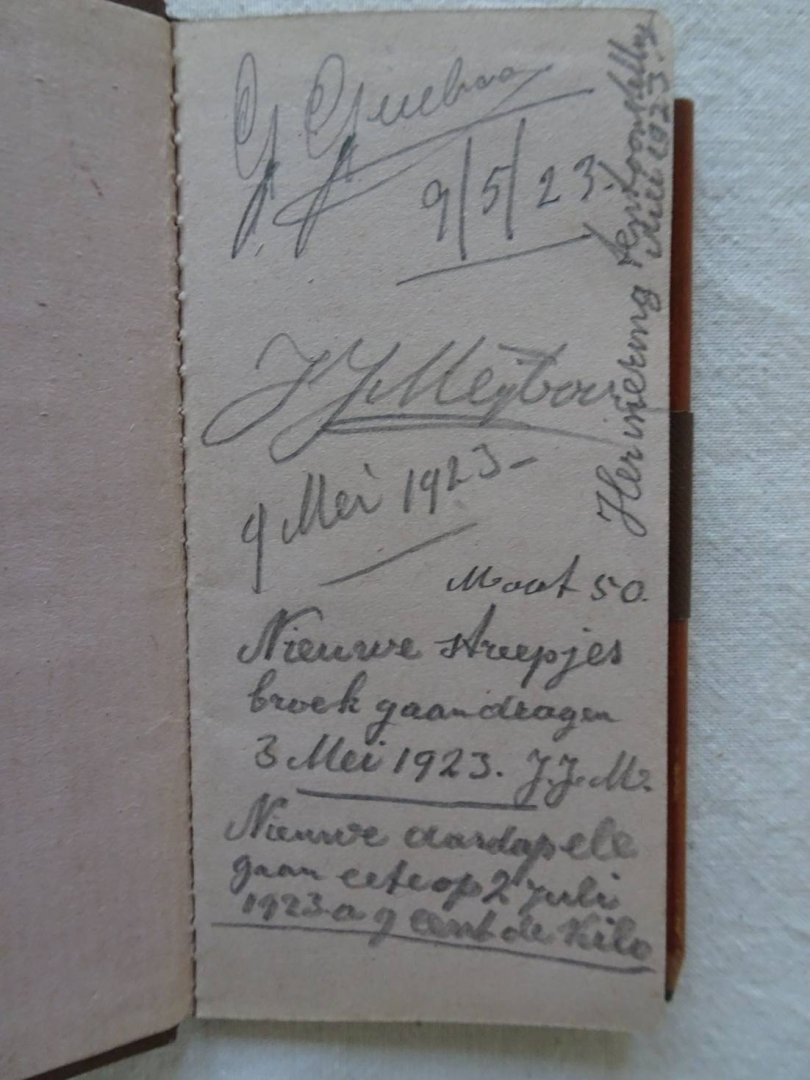 9/5/23.
J J Meijbo
9 Mei 1923-
Maat 50.
Nieuwe streepjes
broek gaan dragen
3 Mei 1923. J.J.M.
Nieuwe aardapele
gaan eete op 2 juli
1923 a 9 cent de Kilo
Herinering tentoonstelling
1923.